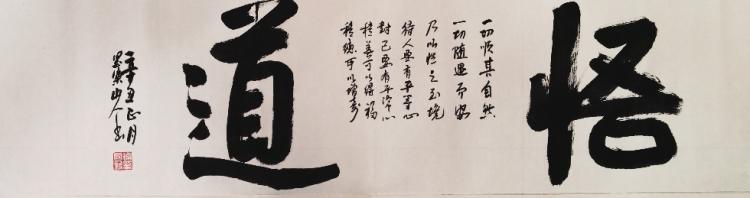 悟
一切顺其自然
一切随遇而安
乃心性之至境
待人要有平等心
对己要有平常心
积善可以得福
积德可以增寿
道
辛丑正月
山人书